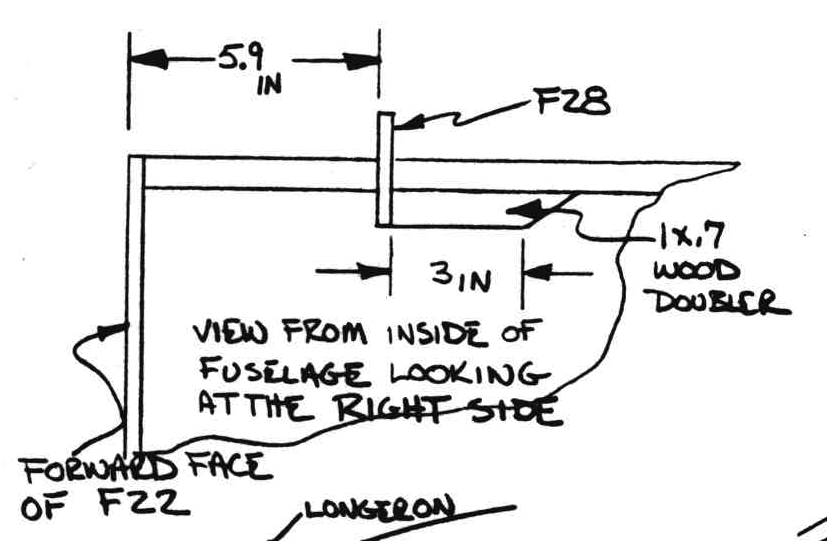 5.9
IN
F28
1X.7
WOOD
DOUBLER
3 IN
VIEW FROM INSIDE OF
FUSELAGE LOOKING
AT THE RIGHT SIDE
FORWARD FACE
OF F22
LONGERON